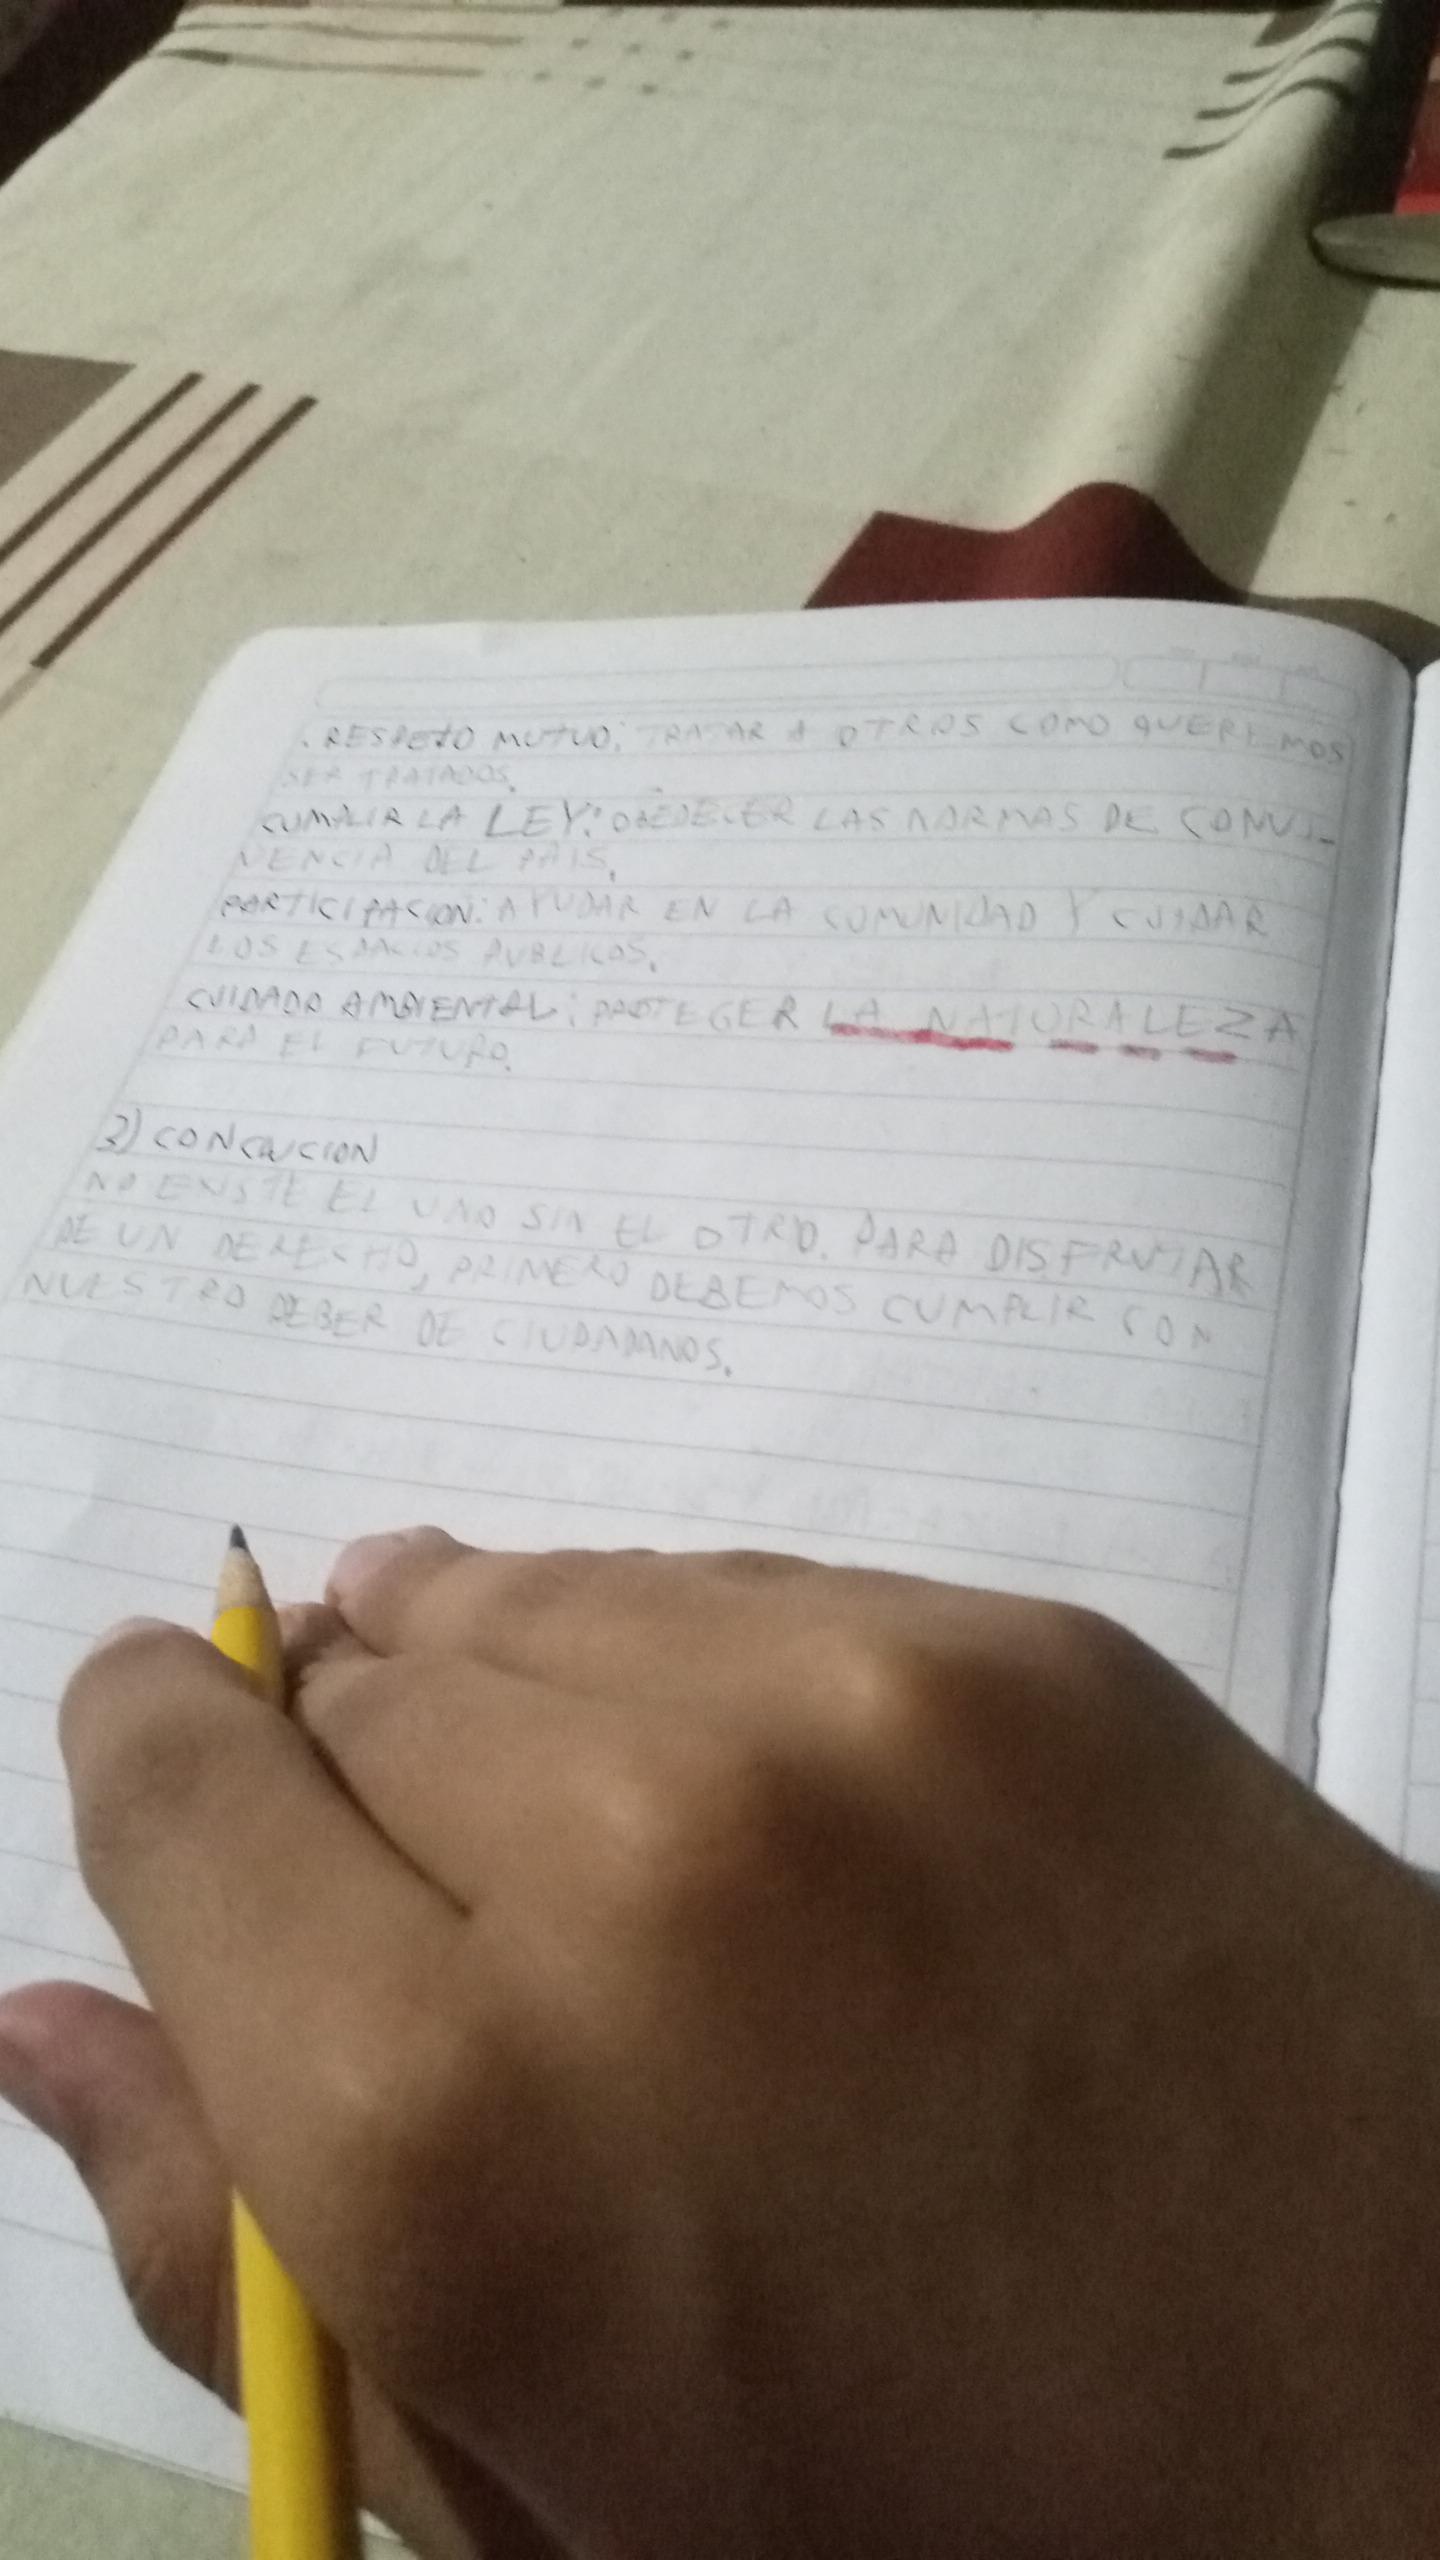 . RESPETO MUTUO: TRATAR A OTROS COMO QUEREMOS
SER TRATADOS.
CUMPLIR LA LEY: OBEDECER LAS NORMAS DE CONVI-
VENCIA DEL PAIS.
PARTICIPACION: AYUDAR EN LA COMUNIDAD Y CUIDAR
LOS ESPACIOS PUBLICOS.
CUIDADO AMBIENTAL: PROTEGER LA NATURALEZA
PARA EL FUTURO.
3) CONCLUCION
NO EXISTE EL UNO SIN EL OTRO. PARA DISFRUTAR
DE UN DERECHO, PRIMERO DEBEMOS CUMPLIR CON
NUESTRO DEBER DE CIUDADANOS.